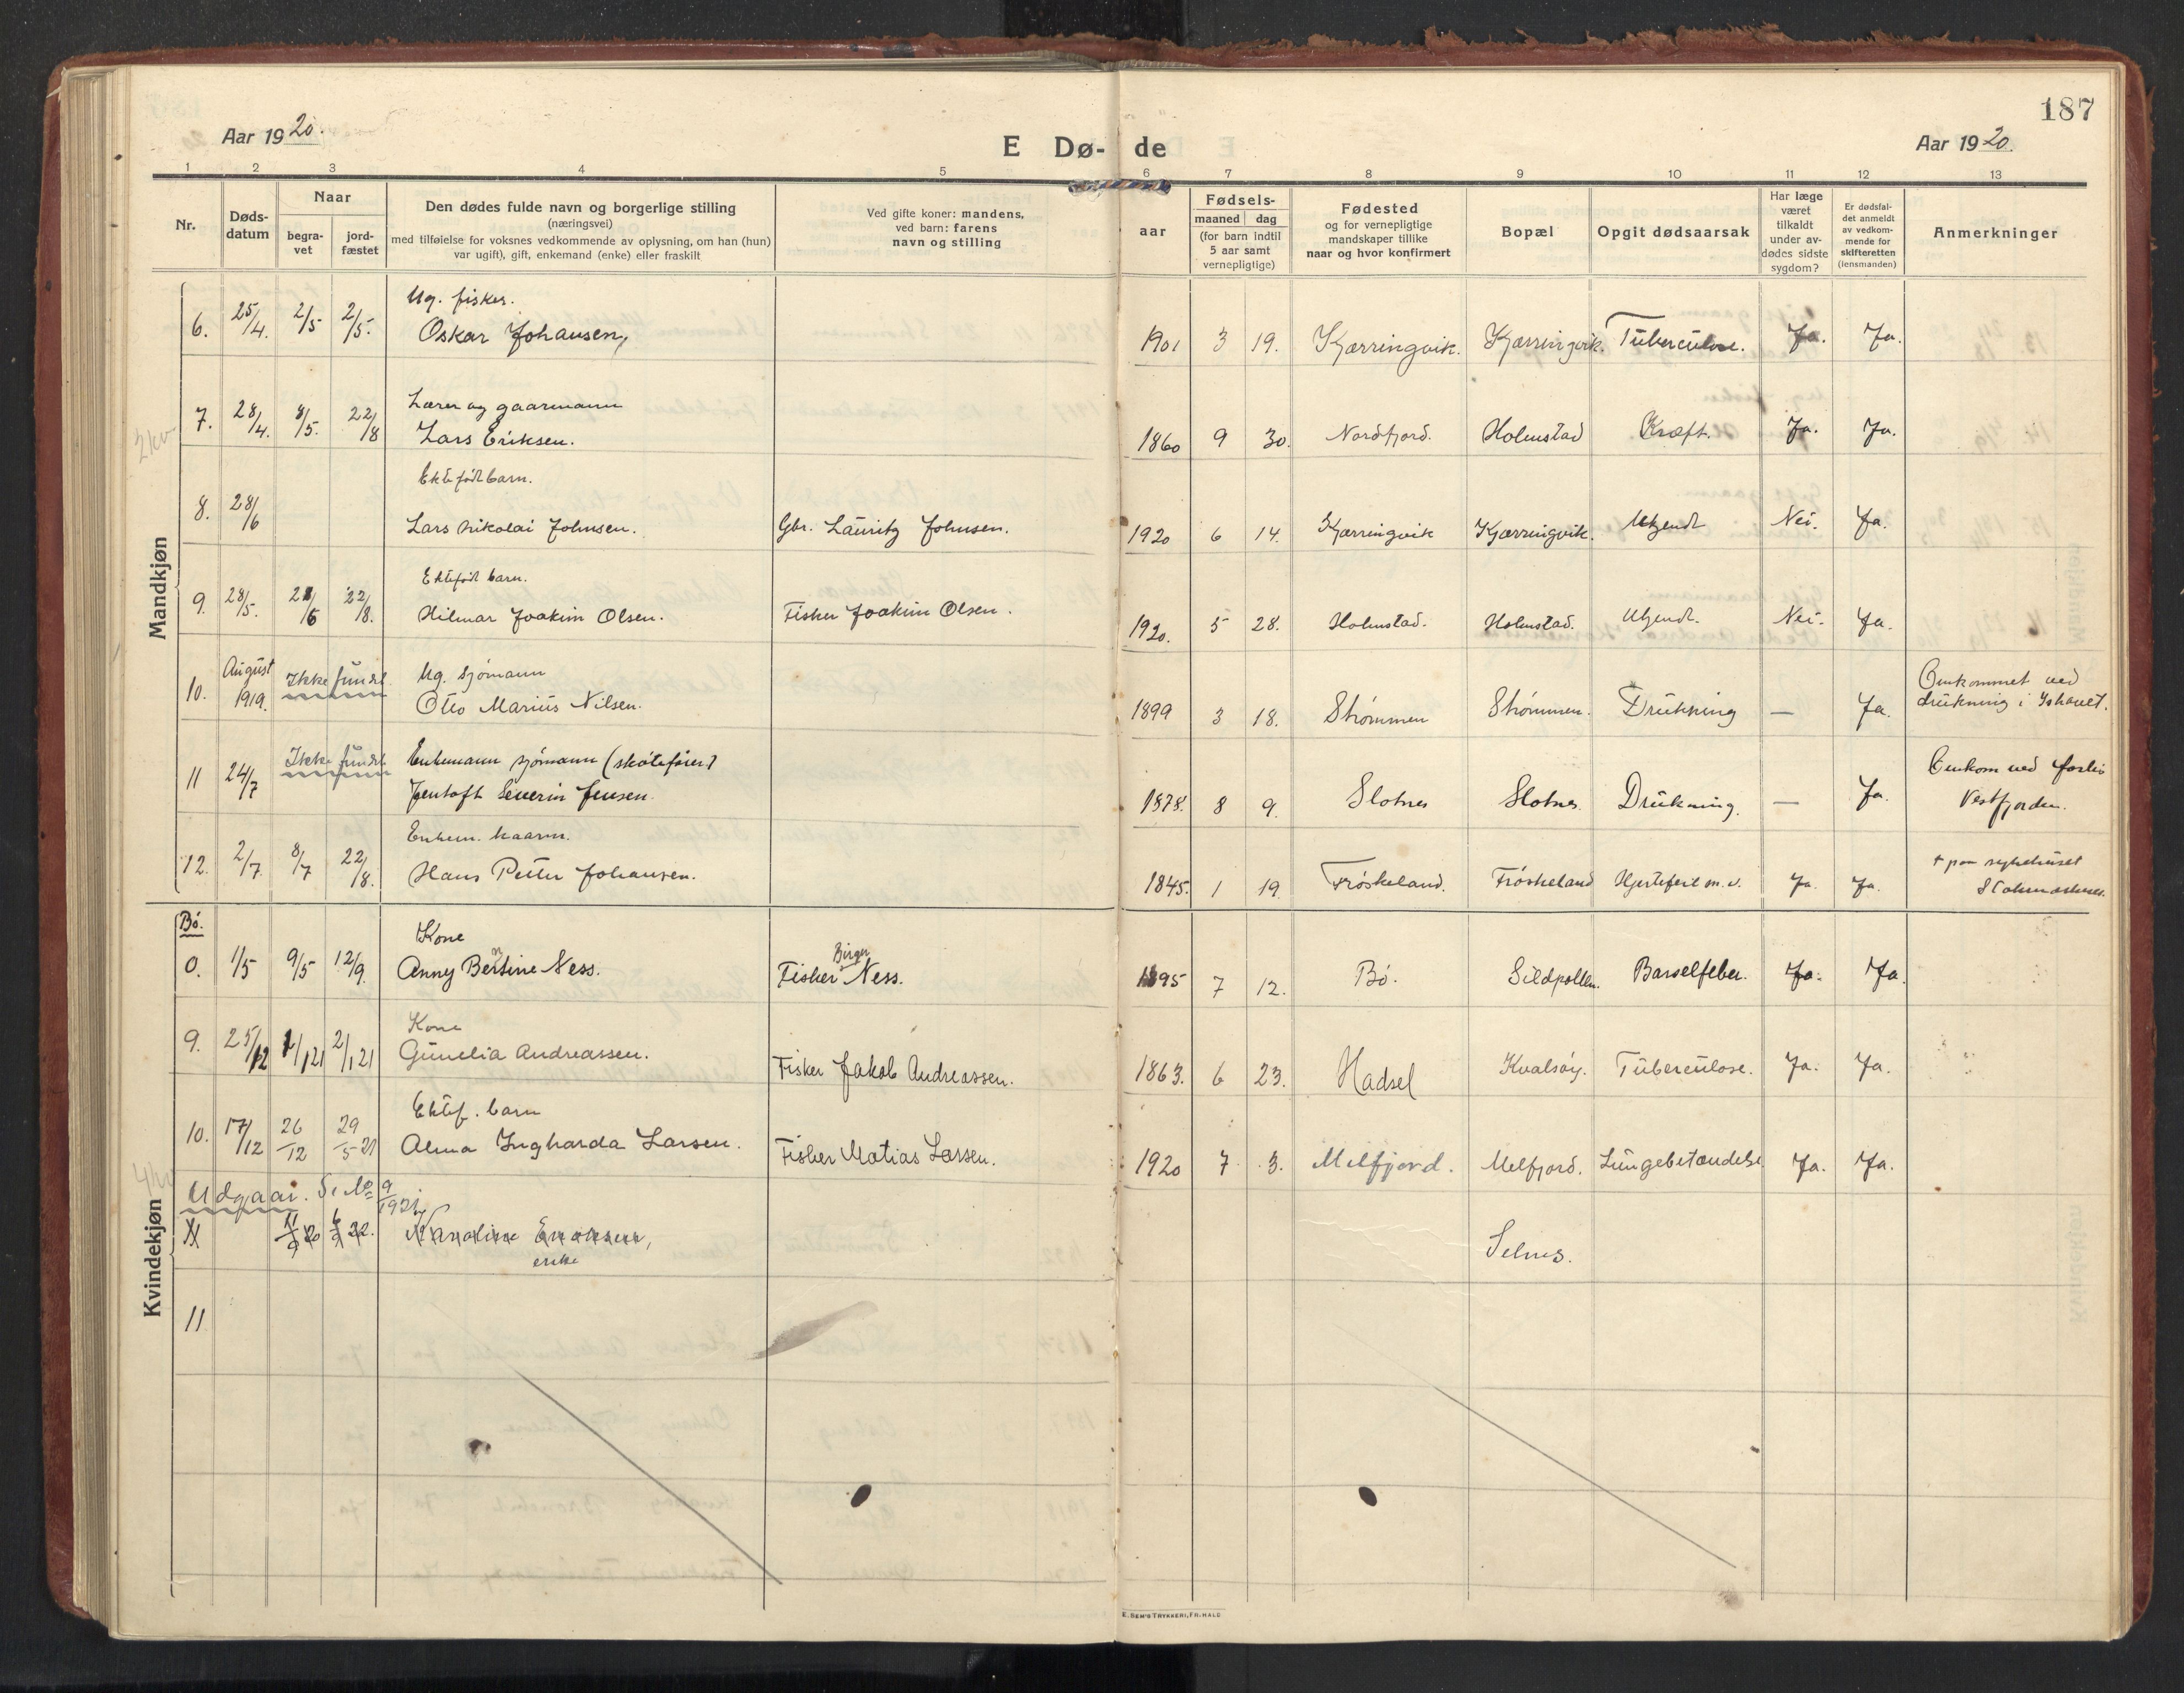 187
Aar 1920.
E Dø- de
Aar 1920.
1 2 3 4 5 6 7 8 9 10 11 12 13
Nr.
Døds-
datum
Naar
begra-
vet
jord-
fæstet
Den dødes fulde navn og borgerlige stilling
(næringsvei)
med tilføielse for voksnes vedkommende av oplysning, om han (hun)
var ugift), gift, enkemand (enke) eller fraskilt
Ved gifte koner: mandens,
ved barn: farens
navn og stilling
Fødsels-
aar
maaned dag
(for barn indtil
5 aar samt
vernepligtige)
Fødested
og for vernepligtige
mandskaper tillike
naar og hvor konfirmert
Bopæl
Opgit dødsaarsak
Har læge
været
tilkaldt
under av-
dødes sidste
sygdom?
Er dødsfal-
det anmeldt
av vedkom-
mende for
skifteretten
(lensmanden)
Anmerkninger
Mandkjøn
Ug. fisker.
6. 25/4. 2/5 2/5. Oskar Johansen, 1901 3 19. Kjærringvik. Kjærringvik. Tuberculose. Ja. Ja.
Lærer og gaarmann
7. 28/4. 8/5. 22/8 Lars Eriksen. 1860 9 30. Nordfjord. Holmstad Kræft. Ja. Ja.
Ektefødt barn.
8. 28/6 Lars Nikolai Johnsen. Gbr. Lauritz Johnsen. 1920 6 14. Kjærringvik Kjærringvik. Ukjendt Nei. Ja.
Ektefødt barn.
9. 28/5. 21/6 22/8. Hilmar Joakim Olsen. Fisker Joakim Olsen. 1920. 5 28. Holmstad. Holmstad. Ukjendt. Nei. Ja.
August Ikke fundet Ug. sjømann Omkommet ved
10. 1919. Otto Marius Nilsen. 1899 3 18. Strømmen Strømmen. Drukning — Ja. drukning i Ishavet.
Ikke fundet Enkemann sjømann (skøtefører) Omkom ved forlis
11 24/7 Jentoft Severin Jensen. 1878. 8 9. Slotnes Slotnes. Drukning. — Ja. Vestfjorden.
Enkem. kaarm. + paa sykehuset
12. 2/7. 8/7 22/8. Hans Petter Johansen. 1845. 1 19 Frøskeland. Frøskeland Hjertefeil m. v. Ja. Ja. Stokmarknes.
Kvindekjøn
Bø.
Kone Birger
0. 1/5 9/5 12/9. Anny Bertine Ness. Fisker Ness. 1895 7 12. Bø. Sildpollen. Barselfeber. Ja. Ja.
Kone
9. 25/12 1/1 21 2/1 21 Gunelia Andreassen. Fisker Jakob Andreassen. 1863. 6 23. Hadsel Kvalsøy. Tuberculose. Ja. Ja.
Ektef. barn
10. 17/12 26/12 29/5-21 Alma Ingharda Larsen. Fisker Matias Larsen. 1920 7 3. Melfjord. Melfjord. Lungebetændelse Ja. Ja.
Udgaar. Se No 9 1921
enke
Selnes.
11
E. SEM'S TRYKKERI, FR.HALD